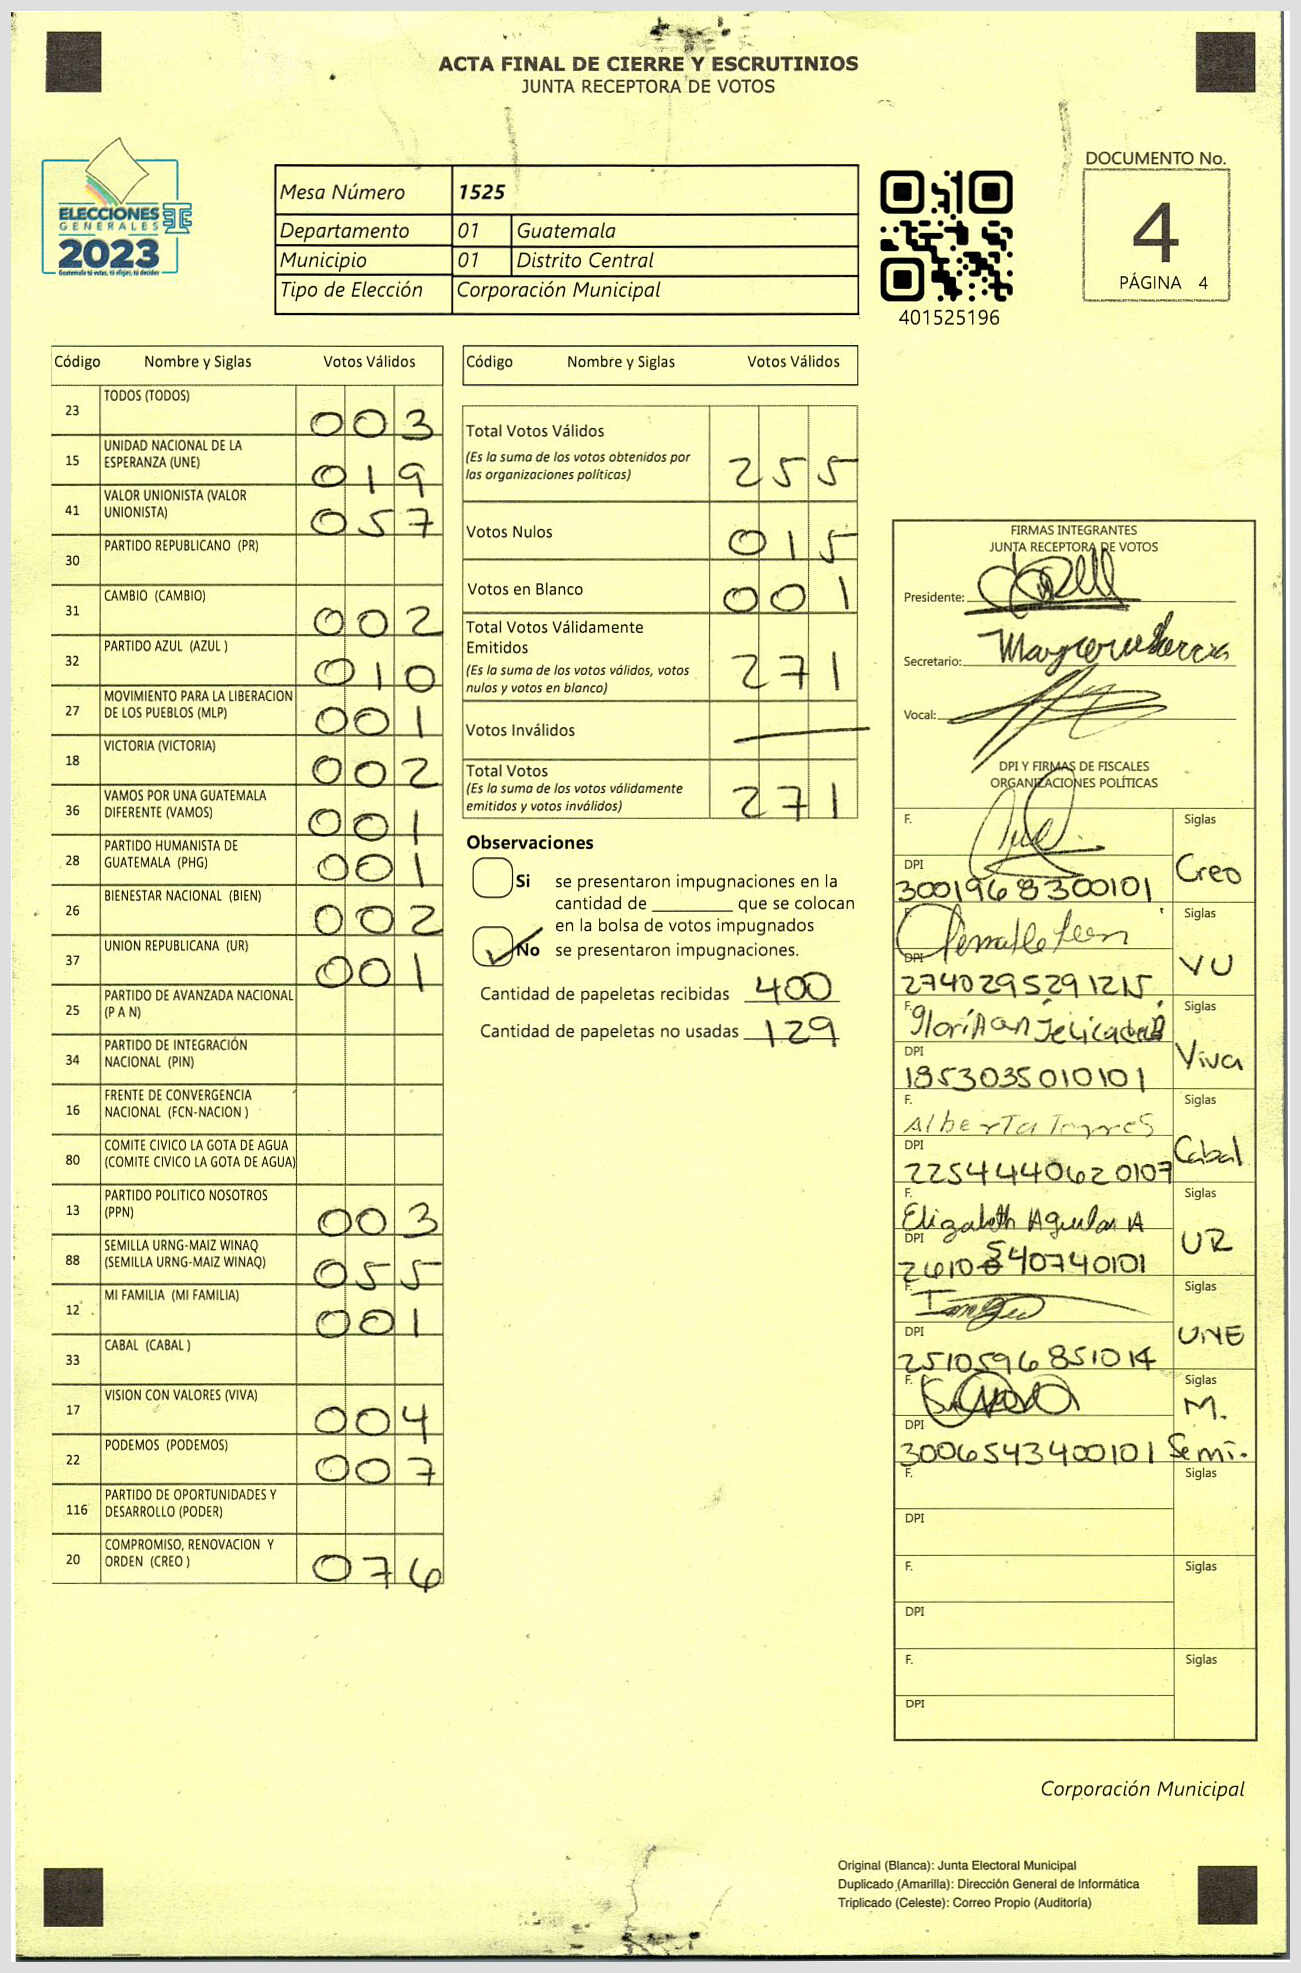 ACTA FINAL DE CIERRE Y ESCRUTINIOS
JUNTA RECEPTORA DE VOTOS
ELECCIONES
GENERALES
2023
Guatemala tú votas, tú eliges, tú decides
Mesa Número 1525
Departamento 01 Guatemala
Municipio 01 Distrito Central
Tipo de Elección Corporación Municipal
401525196
DOCUMENTO No.
4
PÁGINA 4
Código Nombre y Siglas Votos Válidos
23 TODOS (TODOS) 003
15 UNIDAD NACIONAL DE LA
ESPERANZA (UNE) 019
41 VALOR UNIONISTA (VALOR
UNIONISTA) 057
30 PARTIDO REPUBLICANO (PR)
31 CAMBIO (CAMBIO) 002
32 PARTIDO AZUL (AZUL ) 010
27 MOVIMIENTO PARA LA LIBERACION
DE LOS PUEBLOS (MLP) 001
18 VICTORIA (VICTORIA) 002
36 VAMOS POR UNA GUATEMALA
DIFERENTE (VAMOS) 001
28 PARTIDO HUMANISTA DE
GUATEMALA (PHG) 001
26 BIENESTAR NACIONAL (BIEN) 002
37 UNION REPUBLICANA (UR) 001
25 PARTIDO DE AVANZADA NACIONAL
(P A N)
34 PARTIDO DE INTEGRACIÓN
NACIONAL (PIN)
16 FRENTE DE CONVERGENCIA
NACIONAL (FCN-NACION )
80 COMITE CIVICO LA GOTA DE AGUA
(COMITE CIVICO LA GOTA DE AGUA)
13 PARTIDO POLITICO NOSOTROS
(PPN) 003
88 SEMILLA URNG-MAIZ WINAQ
(SEMILLA URNG-MAIZ WINAQ) 055
12 MI FAMILIA (MI FAMILIA) 001
33 CABAL (CABAL )
17 VISION CON VALORES (VIVA) 004
22 PODEMOS (PODEMOS) 007
116 PARTIDO DE OPORTUNIDADES Y
DESARROLLO (PODER)
20 COMPROMISO, RENOVACION Y
ORDEN (CREO ) 076
Código Nombre y Siglas Votos Válidos
Total Votos Válidos
(Es la suma de los votos obtenidos por
las organizaciones políticas) 255
Votos Nulos 015
Votos en Blanco 001
Total Votos Válidamente
Emitidos
(Es la suma de los votos válidos, votos
nulos y votos en blanco) 271
Votos Inválidos
Total Votos
(Es la suma de los votos válidamente
emitidos y votos inválidos) 271
Observaciones
Si se presentaron impugnaciones en la
cantidad de ________ que se colocan
en la bolsa de votos impugnados
No se presentaron impugnaciones.
Cantidad de papeletas recibidas 400
Cantidad de papeletas no usadas 129
FIRMAS INTEGRANTES
JUNTA RECEPTORA DE VOTOS
Presidente:
Secretario:
Vocal:
DPI Y FIRMAS DE FISCALES
ORGANIZACIONES POLÍTICAS
F. Siglas
Creo
DPI
3001968300101
F. Siglas
VU
DPI
2740295291215
F. Siglas
Viva
DPI
1853035010101
F. Alberta Torres Siglas
Cabal
DPI
2254440620107
F. Siglas
Elizabeth Aguilar A
UR
DPI
2610540740101
F. Siglas
UNE
DPI
2510596851014
F. Siglas
M.
Semi.
DPI
3006543400101
F. Siglas
DPI
F. Siglas
DPI
F. Siglas
DPI
Corporación Municipal
Original (Blanca): Junta Electoral Municipal
Duplicado (Amarilla): Dirección General de Informática
Triplicado (Celeste): Correo Propio (Auditoría)